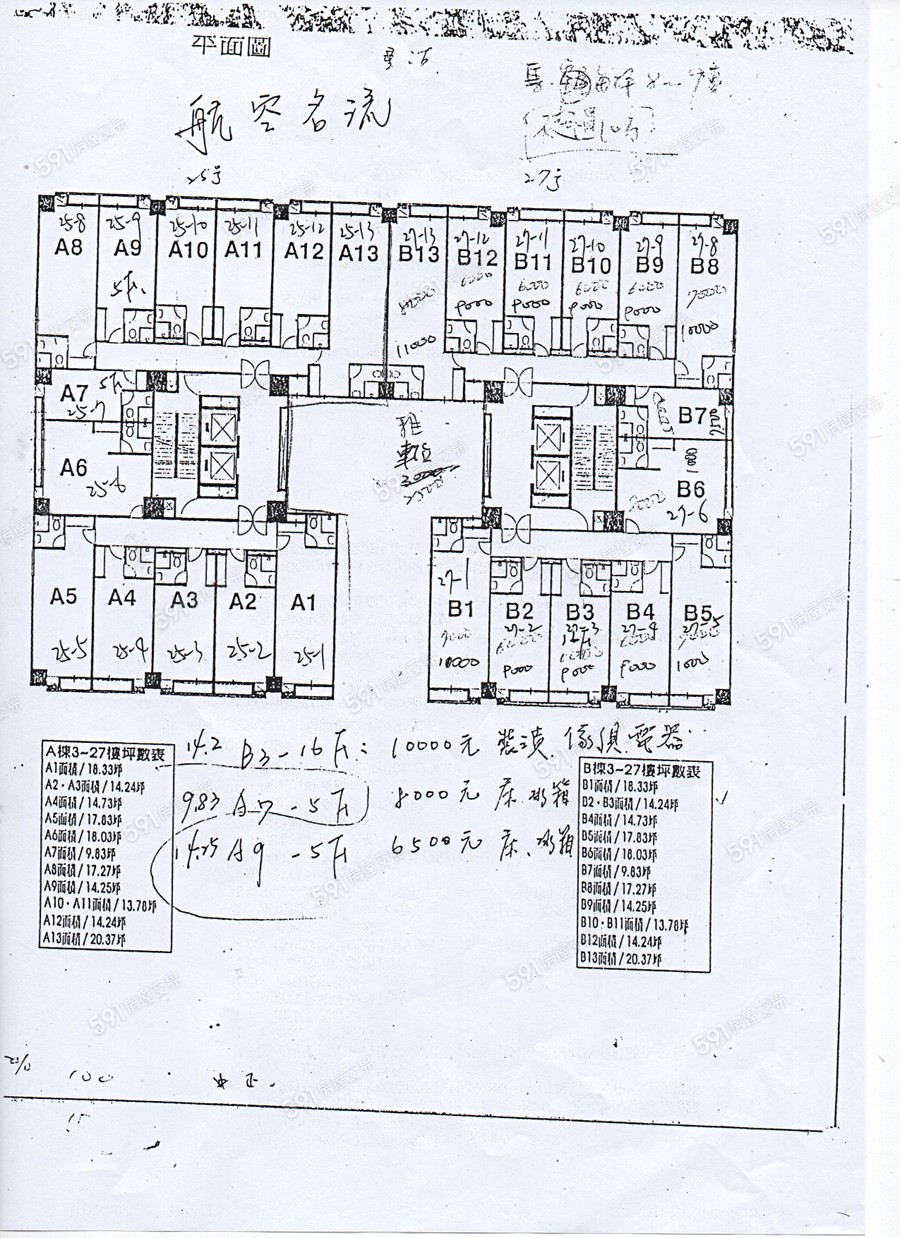 平面圖
航空名流
25号
27号
25-8 25-9 25-10 25-11 25-12 25-13 27-13 27-12 27-11 27-10 27-9 27-8
A8 A9 A10 A11 A12 A13 B13 B12 B11 B10 B9 B8
6000 6000 6000 6000 7000
5F
9000 9000 9000 9000
11000 10000
A7 5F
25-7
B7
A6
25-6
車位
3000
B6
27-6
7000
27-1
A5 A4 A3 A2 A1 B1 B2 B3 B4 B5
27-2 27-3 27-4 27-5
25-5 25-4 25-3 25-2 25-1
7000
10000 9000 9000 9000
A棟3~27樓坪數表
A1面積/18.33坪
A2・A3面積/14.24坪
A4面積/14.73坪
A5面積/17.83坪
A6面積/18.03坪
A7面積/9.83坪
A8面積/17.27坪
A9面積/14.25坪
A10・A11面積/13.78坪
A12面積/14.24坪
A13面積/20.37坪
14.2 B3-16F: 10000元 裝潢 傢俱電器
9.83 A7-5F 8000元 床 冰箱
14.25 A9-5F 6500元 床、冰箱
B棟3~27樓坪數表
B1面積/18.33坪
B2・B3面積/14.24坪
B4面積/14.73坪
B5面積/17.83坪
B6面積/18.03坪
B7面積/9.83坪
B8面積/17.27坪
B9面積/14.25坪
B10・B11面積/13.78坪
B12面積/14.24坪
B13面積/20.37坪
100
591房屋交易